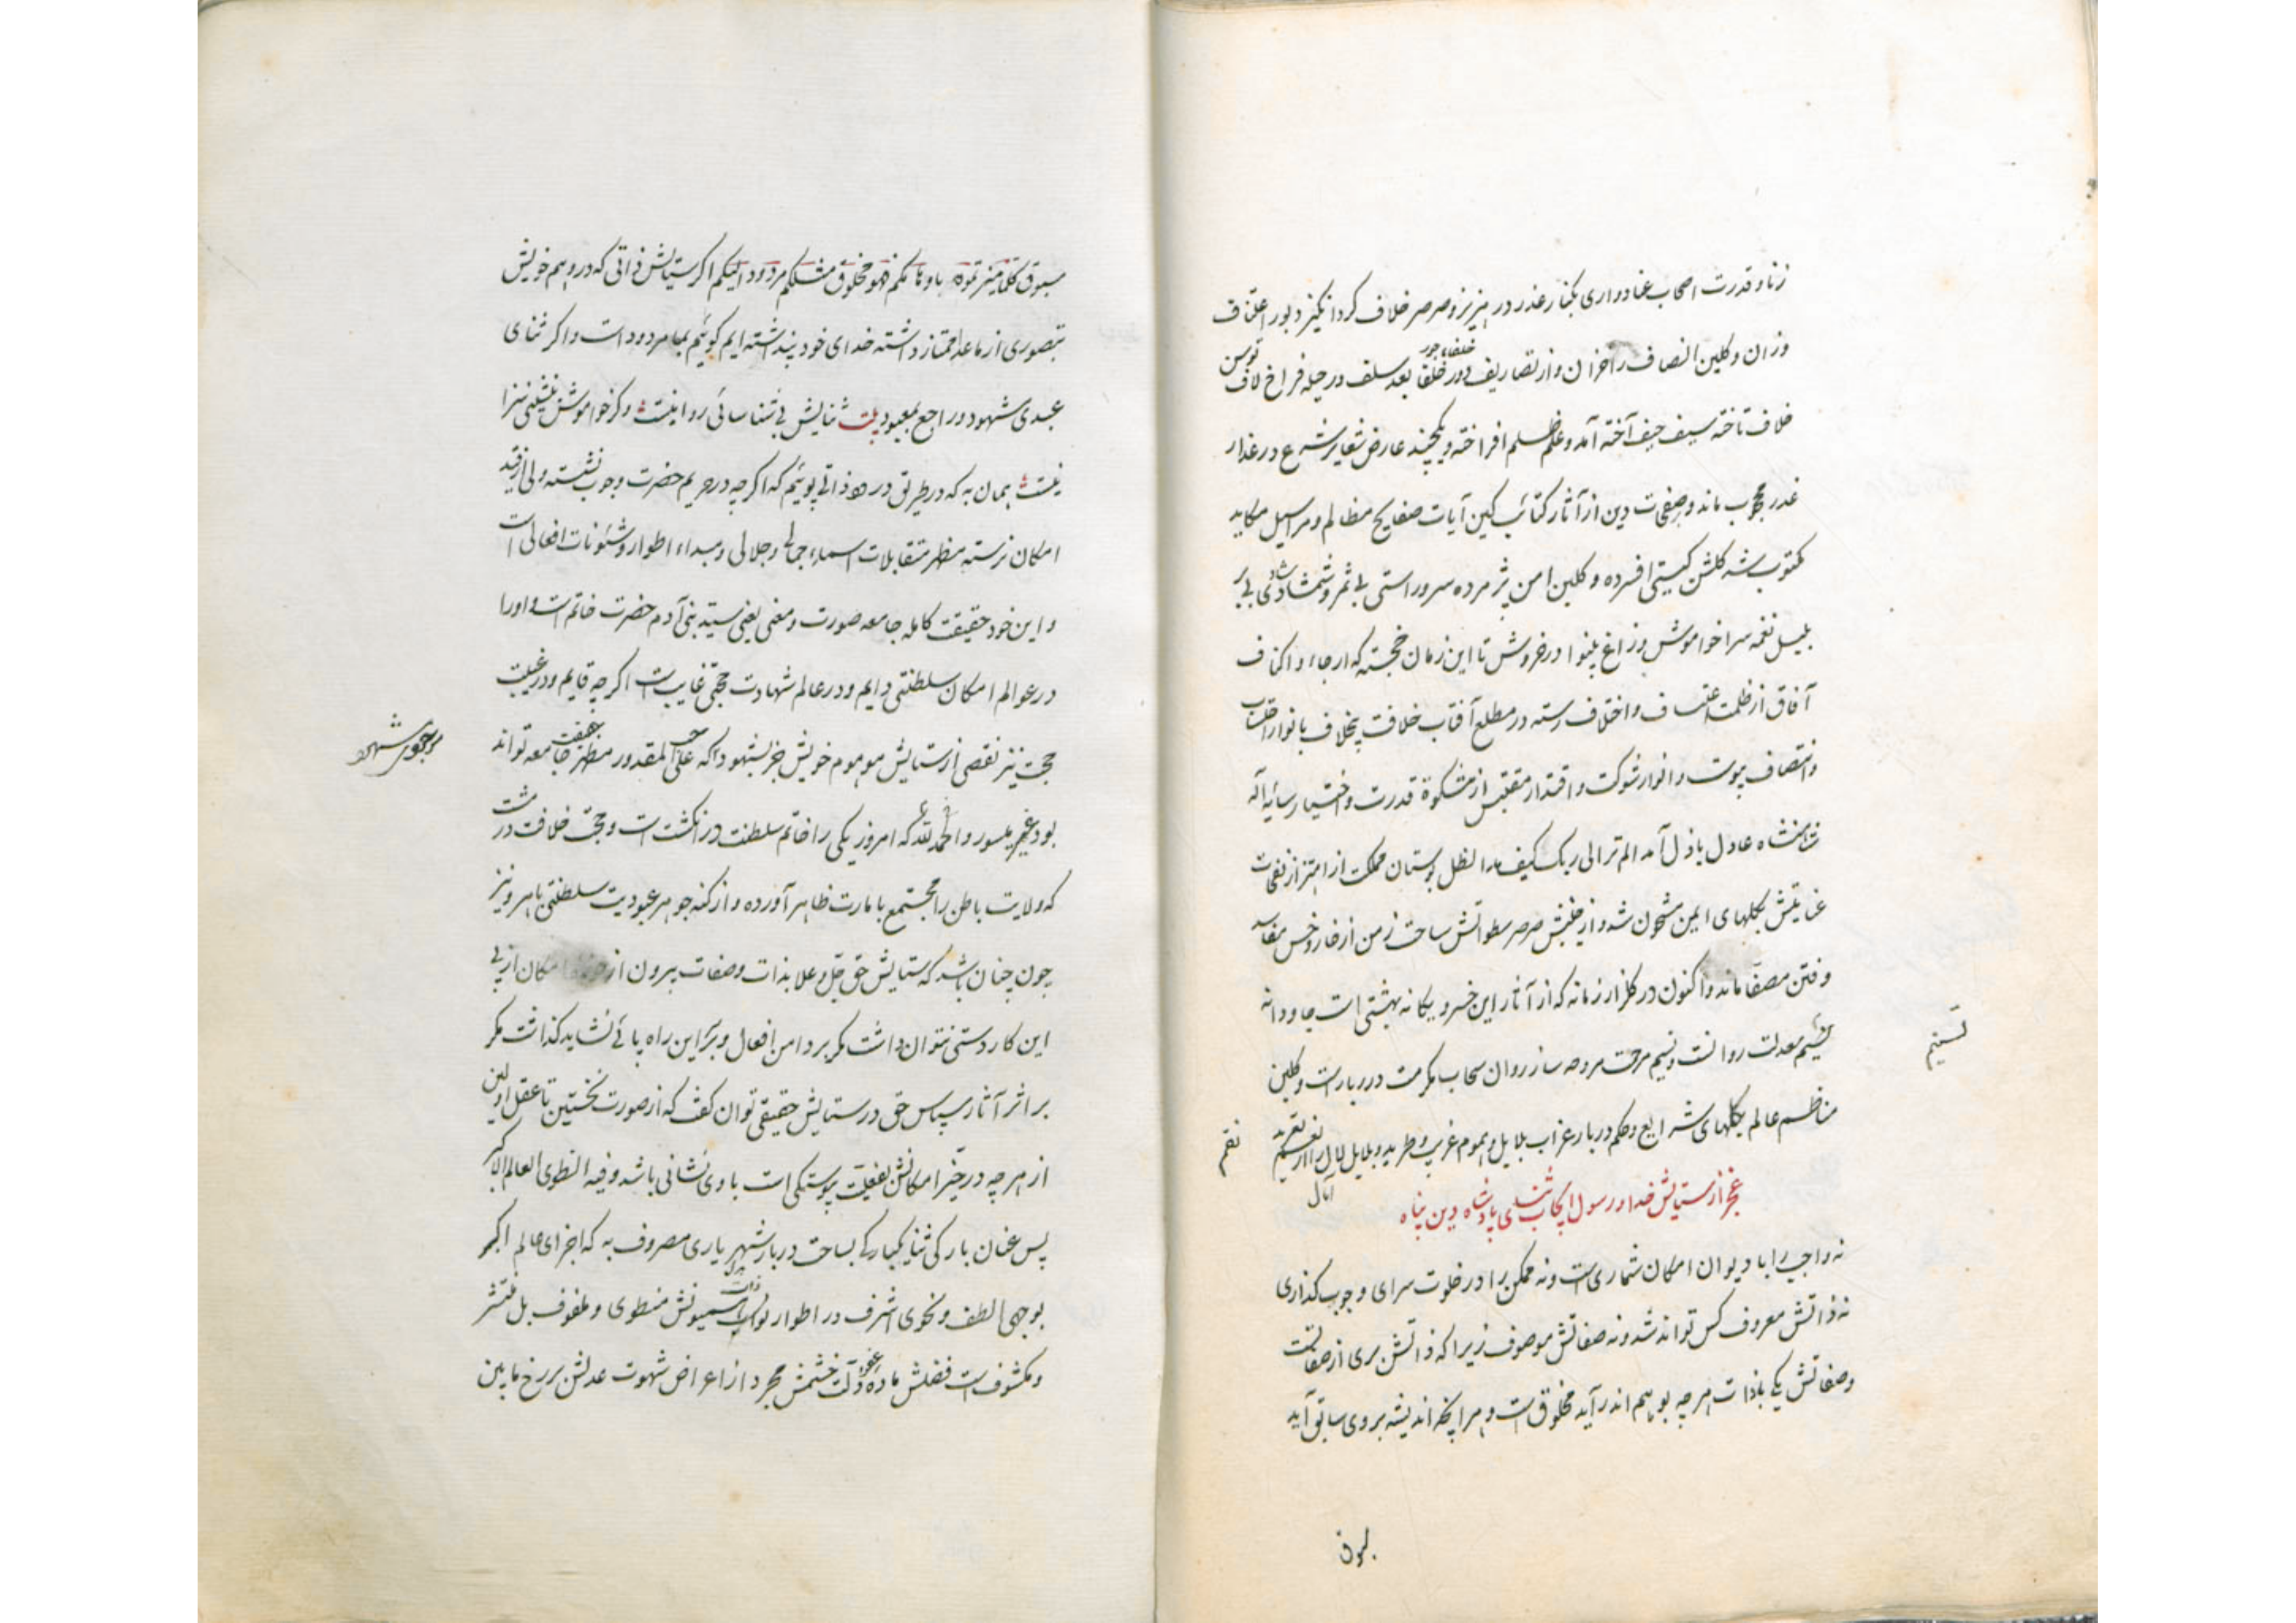 زناد قدرت اصحاب عناد واری بکنار غدر در هزیز و صرصر خلاف کرد انگیز دبور اعتناف
وزان و گلبن انصاف را خزان و از تصاریف دور خلفا بعد سلف در حیله فراخ لاف
خلفاء جور
توسن
خلاف تاخته سیف حیف آخته آمد و علم ظلم افراخته و یکچند عارض شعایر شرع در غدار
غدر محجوب ماند و صفحات دین از آثار کتائب کین آیات صفایح مظالم و مراسیل مکاید
مکتوب شد گلشن گیتی افسرده و گلبن امن پژمرده سرو راستی بی ثمر و شمشاد شادی بی بر
بلبل نغمه سرا خواموش و زاغ بینوا در خروش تا این زمان خجسته که ارجاء و اکناف
آفاق از ظلمت اعتساف و اختلاف رسته در مطلع آفتاب خلافت بیخلاف بانوار
وانتصاف پیوست و انوار شوکت و اقتدار مقتبس از مشکوة قدرت و اختیار سایه اله
شاهنشاه عادل باذل آمد الم تر الی ربک کیف مد الظل بوستان مملکت از اهتزاز نفحات
عنایتش بگلهای ایمن مشحون شد و از جنبش صرصر سطوتش ساحت زمن از خار و خس مفاسد
و فتن مصفا ماند و اکنون در گلزار زمانه که از آثار این خسرو یگانه بهشتی است جاودانه
معدلت روانست و نسیم مرحمت مروحه ساز روان سحاب مکرمت در ربار است و گلبن
تسنیم
مناظم عالم بگلهای شرایع و حکم دربار غراب بلابل و هموم غریب و طرید و بلابل
نغم
آمال
عجز از ستایش خدا و رسول ایجاب ثنای پادشاه دین پناه
نه واجب را با دیوان امکان شماریست و نه ممکن را در خلوت سرای وجوب گذاری
نه ذاتش معروف کس تواند شد و نه صفاتش موصوف زیرا که ذاتش بری از صفاتست
و صفاتش یکی با ذات هر چه بوهم اندر آید مخلوق است و هر آنچه اندیشه بروی سابق آید
مسبوق کلما میزتموه باوهامکم فهو مخلوق مثلکم مردود الیکم اگر ستایش ذاتی که در وهم خویش
بتصوری از ماعدا ممتاز داشته خدای خود پنداشته ایم گوئیم بما مردود است و اگر ثنای
عبدی شهود و راجع بمعبودیت ثنایش بی شناسائی روا نیست و گر خواموش نشینی سزا
نیست همان به که در طریق در ذاتی پوئیم که اگر چه در حریم حضرت وجوب نشسته ولی از قید
امکان نرسته مظهر متقابلات اسماء جمالی و جلالی و مبداء اطوار و شئونات افعالی است
و این خود حقیقت کامله جامعه صورت و معنی یعنی سید بنی آدم حضرت خاتم است و او را
در عوالم امکان سلطنتی دایم و در عالم شهادت حجتی غایبست اگر چه قایم و در غیبت
حجت نیز نقصی از ستایش موهوم خویش جز بشهود آنکه علی المقدور مظهر جامعه تواند
بود غیر میسور و الحمد لله که امروز یکی را خاتم سلطنت در انگشت است و حجت خلافت در مشت
که ولایت باطن را مجتمع با مارت ظاهر آورده و از کنه جوهر عبودیت سلطنتی باهر و نیز
چون چنان باشد که ستایش حق جل و علا بذات و صفات بیرون از امکان از پی
این کار دستی نتوان داشت مگر بر دامن افعال و بر این راه پائی نشاید گذاشت مگر
بر اثر آثار سپاس حق در ستایش حقیقی توان گفت که از صورت نخستین تا عقل اولین
از هر چه در حیز امکانش بفعلیت پیوستگی است با وی نشانی باشد و فیه انطوی العالم الاکبر
پس عنان بارگی ثنا یکبارگی بساحت دربار شهریاری مصروف به که اجزای عالم اکبر
بوجهی الطف و نحوی اشرف در اطوار منطوی و ملفوف بل منتشر
و مکشوفست فضلش ماده عفو و آلت خشمش مجرد از اعراض شهوت عدلش برزخ مابین